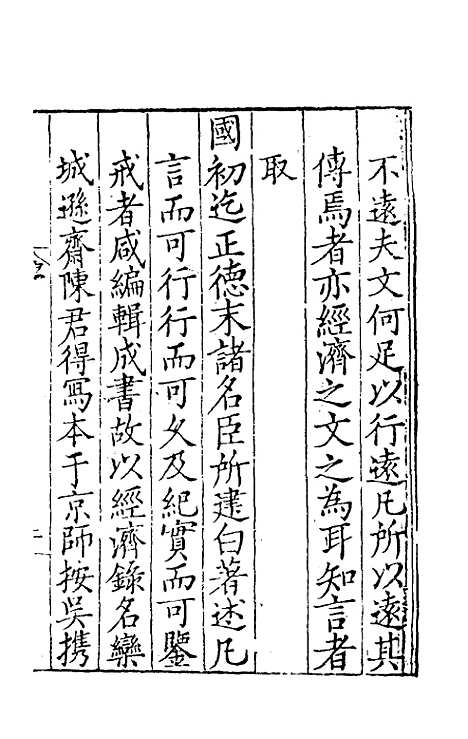 不遠夫文何足以行遠凡所以遠其
傳焉者亦經濟之文之為耳知言者
取
國初迄正德末諸名臣所建白著述凡
言而可行行而可久及紀實而可鑒
戒者咸編輯成書故以經濟錄名欒
城遜齋陳君得寫本于京師按吳攜